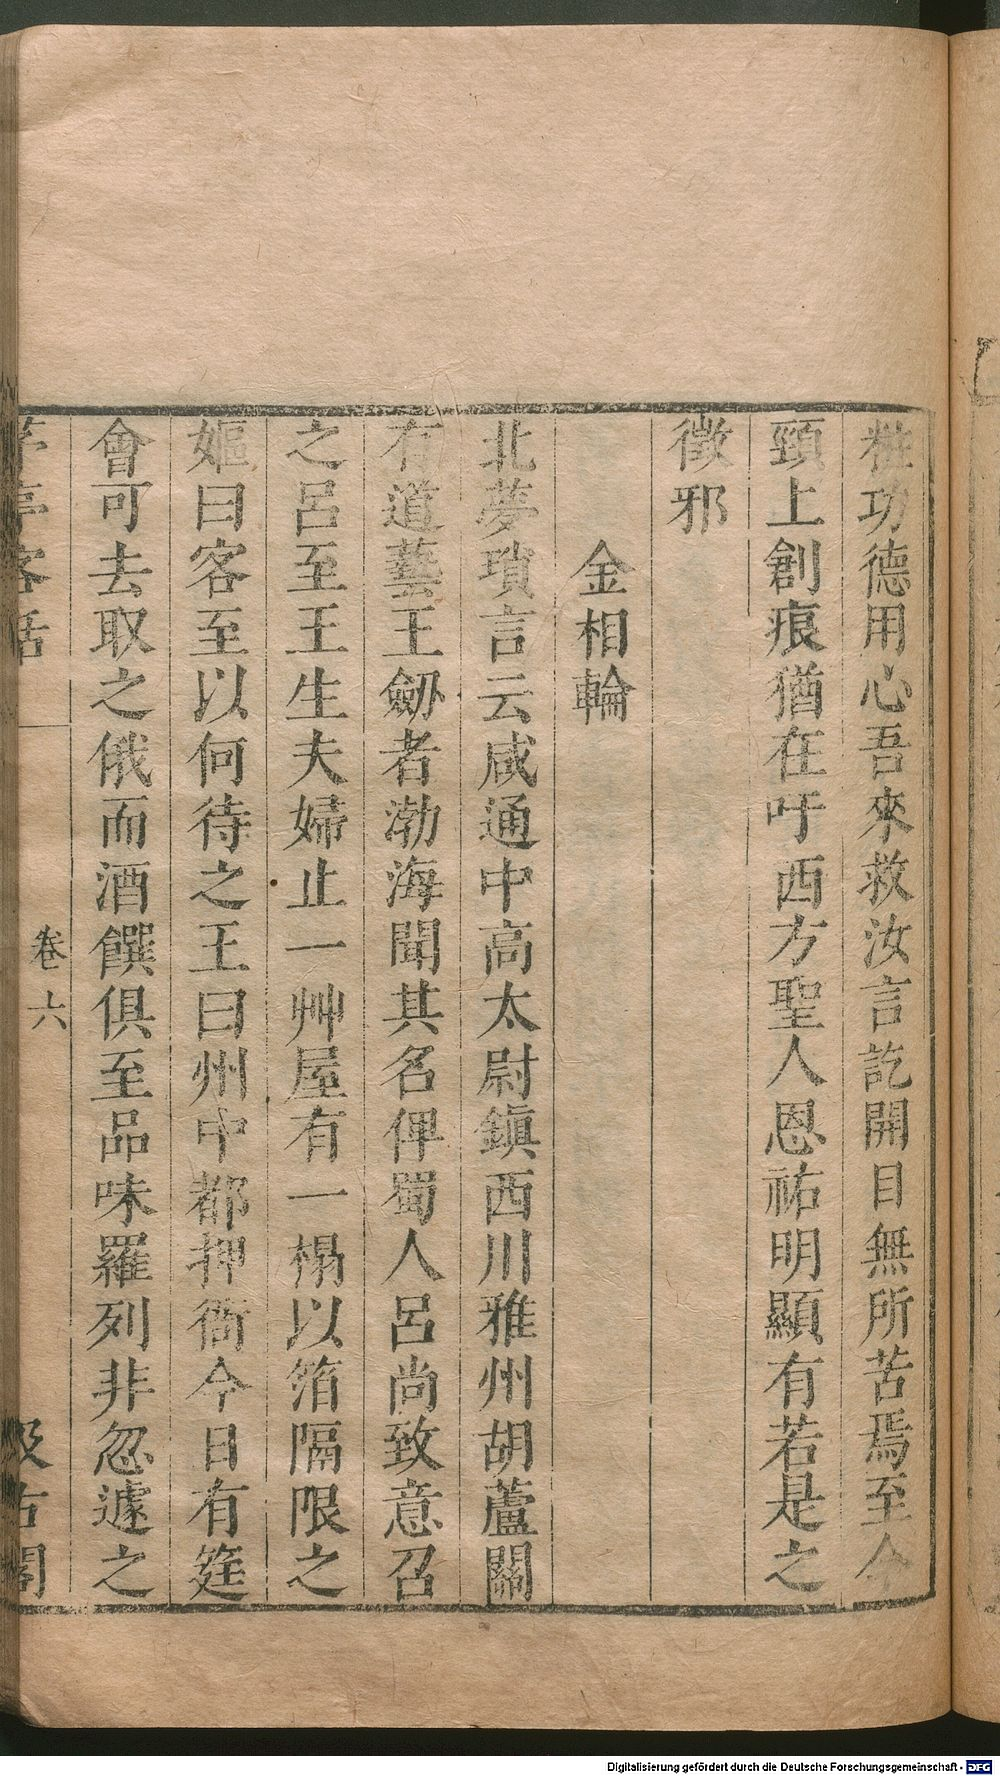 粧功德用心吾來救汝言訖開目無所苦焉至今
頸上創痕猶在吁西方聖人恩祐明顯有若是之
徵邪
金相輪
北夢瑣言云咸通中高太尉鎮西川雅州胡蘆關
有道藝王劒者渤海聞其名俾蜀人呂尚致意召
之呂至王生夫婦止一艸屋有一榻以箔隔限之
嫗曰客至以何待之王曰州中都押衙今日有筵
會可去取之俄而酒饌俱至品味羅列非忽遽之
茅亭客話 卷六 汲古閣
Digitalisierung gefördert durch die Deutsche Forschungsgemeinschaft - DFG